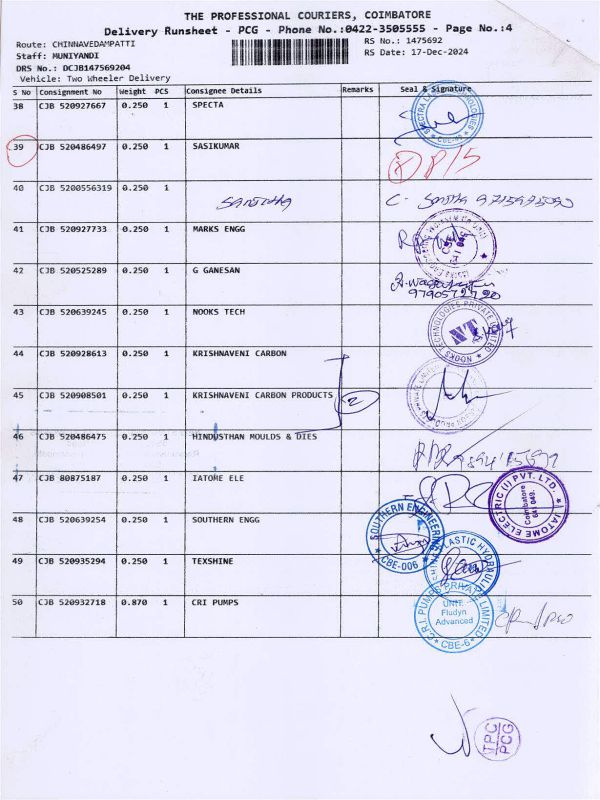 THE PROFESSIONAL COURIERS, COIMBATORE
Delivery Runsheet - PCG - Phone No.:0422-3505555 - Page No.:4
Route: CHINNAVEDAMPATTI RS No.: 1475692
Staff: MUNIYANDI RS Date: 17-Dec-2024
DRS No.: DCJB147569204
Vehicle: Two Wheeler Delivery
S No Consignment No Weight PCS Consignee Details Remarks Seal & Signature
38 CJB 520927667 0.250 1 SPECTA
39 CJB 520486497 0.250 1 SASIKUMAR
P/S
40 CJB 5200556319 0.250 1
41 CJB 520927733 0.250 1 MARKS ENGG
42 CJB 520525289 0.250 1 G GANESAN
43 CJB 520639245 0.250 1 NOOKS TECH
NT
NOOKS
44 CJB 520928613 0.250 1 KRISHNAVENI CARBON
45 CJB 520908501 0.250 1 KRISHNAVENI CARBON PRODUCTS 2
46 CJB 520486475 0.250 1 HINDUSTHAN MOULDS & DIES
47 CJB 80875187 0.250 1 IATOME ELE
IATOME ELECTRIC (I) PVT. LTD.
Coimbatore
641 049.
48 CJB 520639254 0.250 1 SOUTHERN ENGG
SOUTHERN ENGINEERING
CBE-006
49 CJB 520935294 0.250 1 TEXSHINE
50 CJB 520932718 0.870 1 CRI PUMPS
C.R.I. PUMPS PRIVATE LIMITED
UNIT
Fludyn
Advanced
CBE-6
TPC
PCG